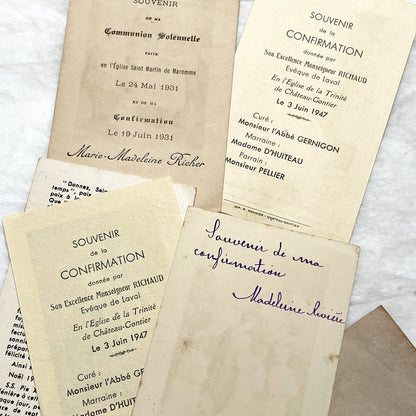 SOUVENIR
DE MA
Communion Solennelle
FAITE
en l'Église Saint Martin de Maromme
Le 24 Mai 1931
ET DE MA
Confirmation
Le 19 Juin 1931
Marie-Madeleine Richer
SOUVENIR
de la
CONFIRMATION
donnée par
Son Excellence Monseigneur RICHAUD
Evêque de Laval
En l'Eglise de la Trinité
de Château-Gontier
Le 3 Juin 1947
Curé :
Monsieur l'Abbé GERNIGON
Marraine :
Madame D'HUITEAU
Parrain :
Monsieur PELLIER
"Donnez, Sei
temps", paix
paix à la
Que
SOUVENIR
de la
CONFIRMATION
donnée par
Son Excellence Monseigneur RICHAUD
Evêque de Laval
En l'Eglise de la Trinité
de Château-Gontier
Le 3 Juin 1947
Curé :
Monsieur l'Abbé GER
Marraine :
Madame D'HUITE
félicité
Ainsi
Noël
SS. Pie X
Souvenir de ma
confirmation
Madeleine Rivière